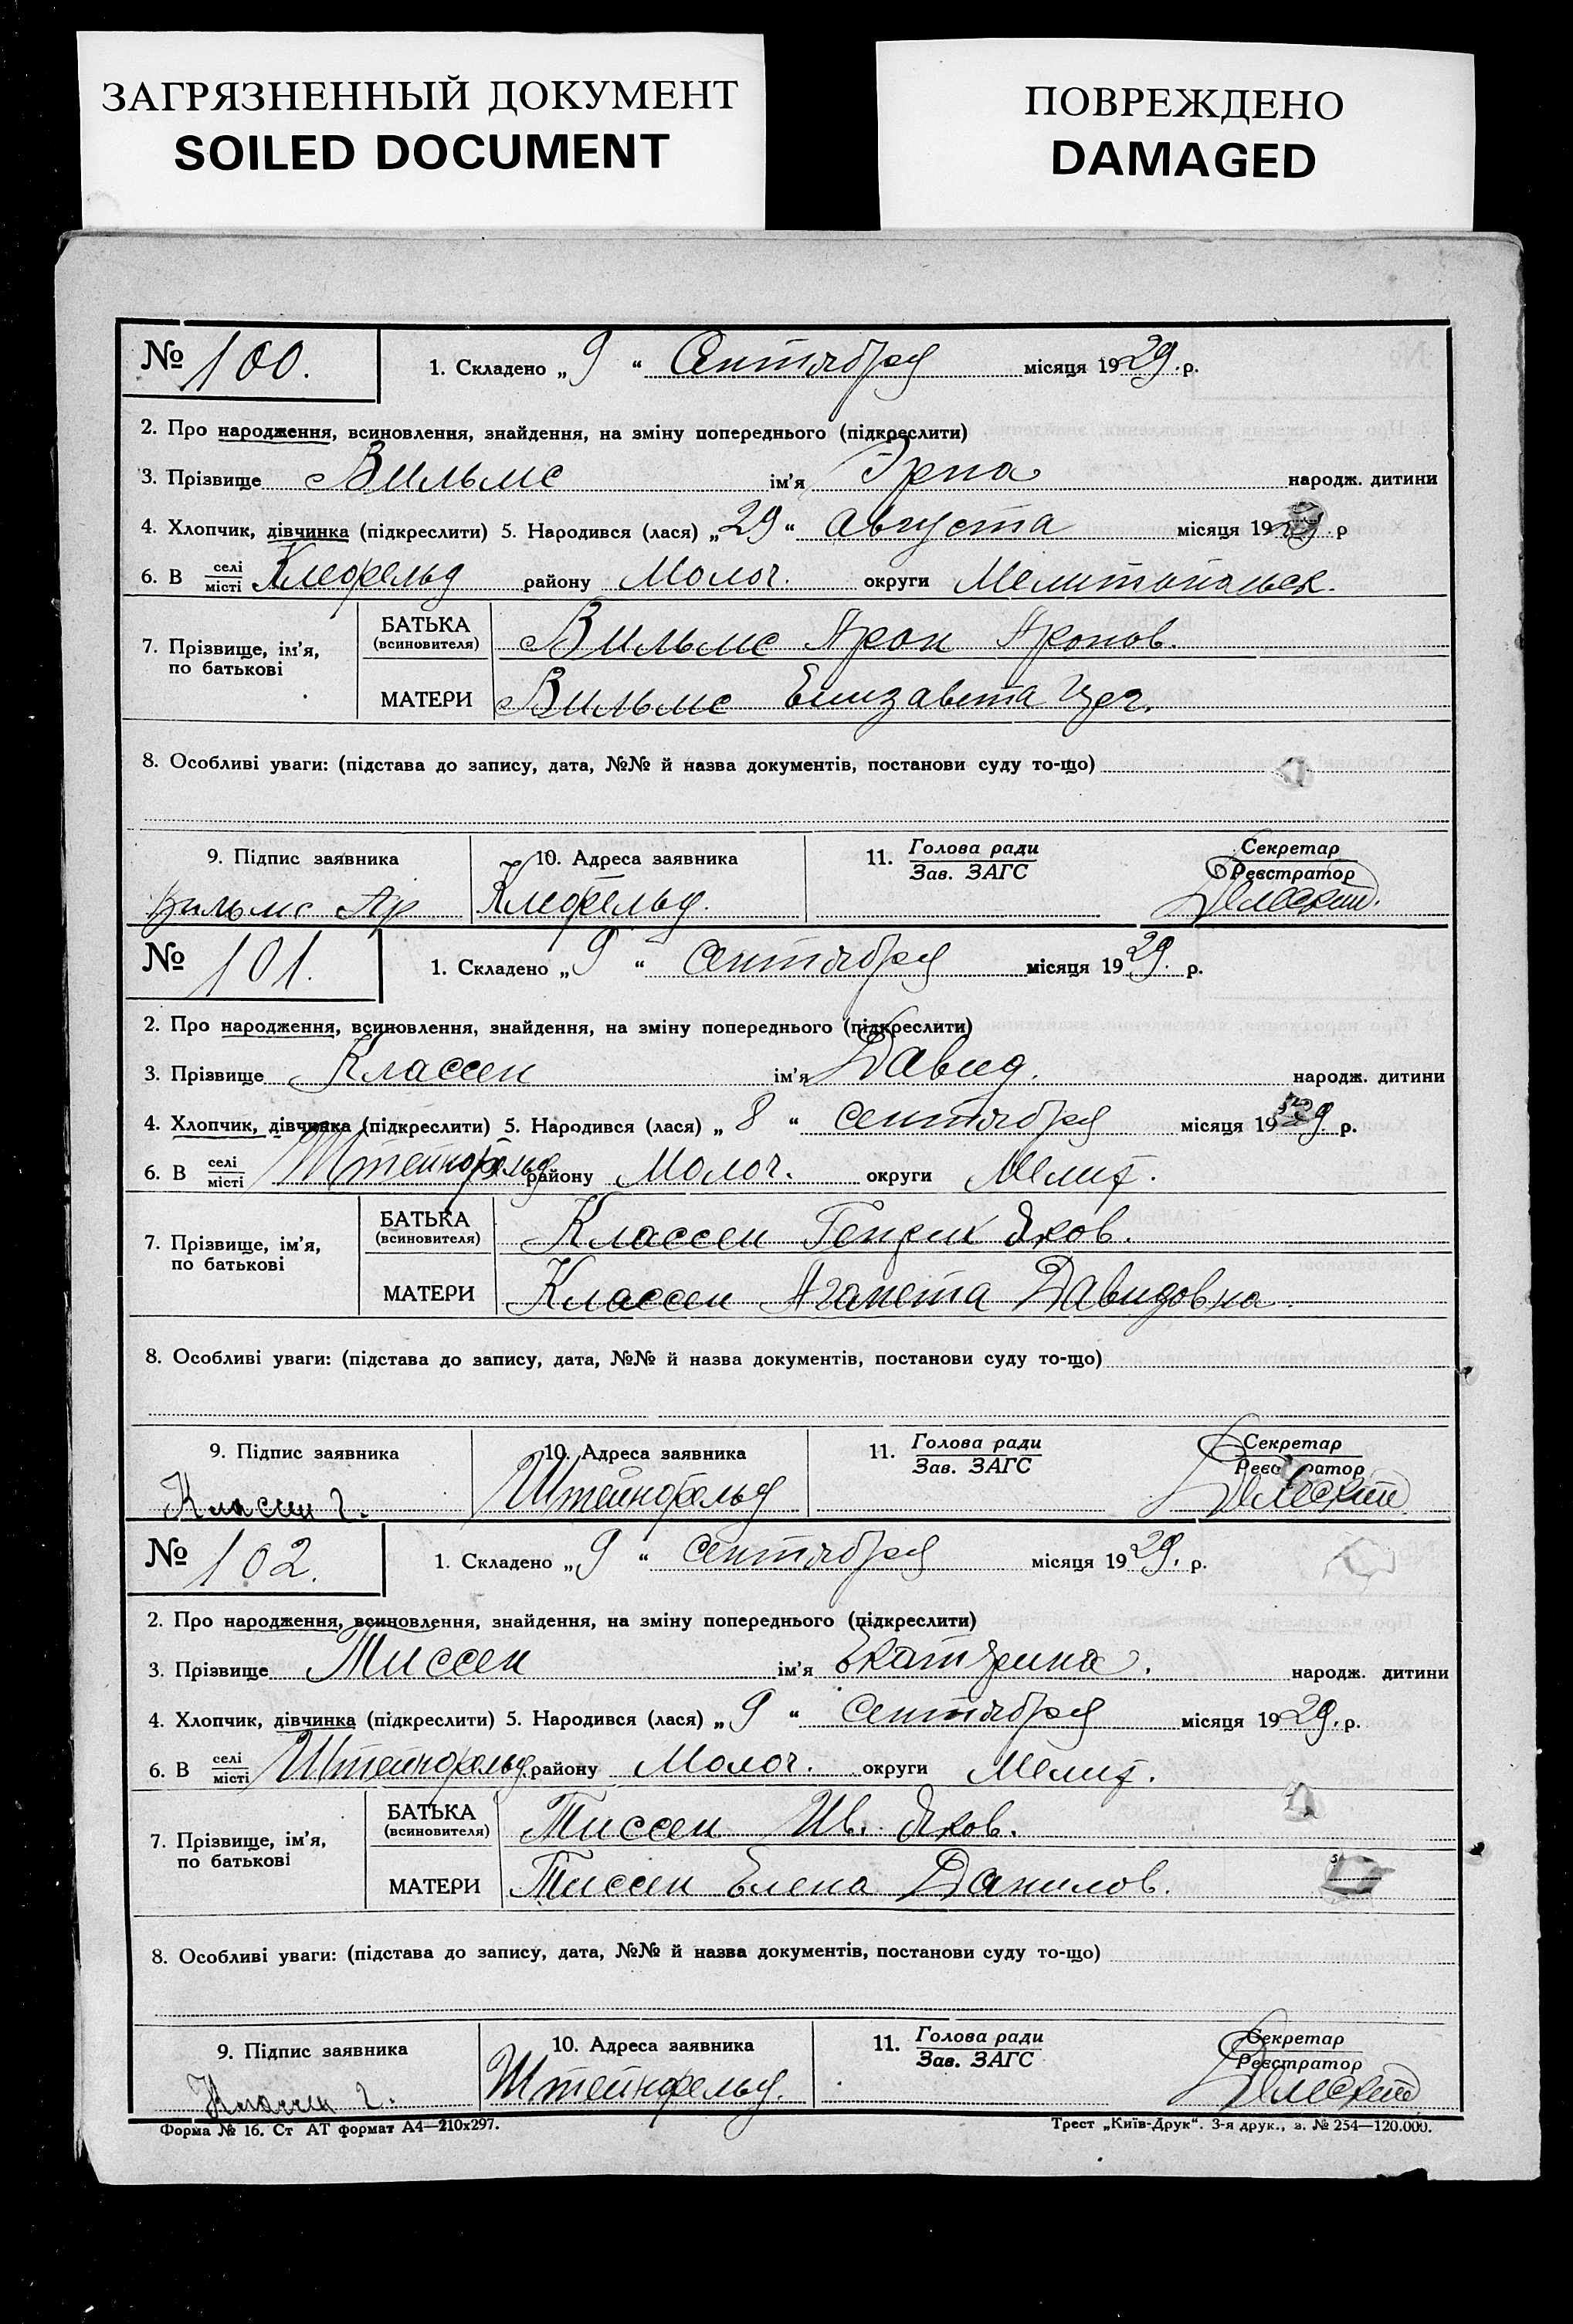 ЗАГРЯЗНЕННЫЙ ДОКУМЕНТ
SOILED DOCUMENT
ПОВРЕЖДЕНО
DAMAGED
№ 100. 1. Складено „ 9 “ Сентября місяця 1929. р.
2. Про народження, всиновлення, знайдення, на зміну попереднього (підкреслити)
3. Прізвище Вильмс ім'я Эрна народж. дитини
4. Хлопчик, дівчинка (підкреслити) 5. Народився (лася) „ 29 “ августа місяця 1929 р
6. В селі/місті Клефельд району Молоч. округи Мелитопольск.
7. Прізвище, ім'я, по батькові
БАТЬКА (всиновителя) Вильмс Арон Аронов.
МАТЕРИ Вильмс Елизавета
8. Особливі уваги: (підстава до запису, дата, №№ й назва документів, постанови суду то-що)
9. Підпис заявника 10. Адреса заявника 11. Голова ради/Зав. ЗАГС Секретар/Реєстратор
Вильмс Ар Клефельд.
№ 101. 1. Складено „ 9 “ сентября місяця 1929. р.
2. Про народження, всиновлення, знайдення, на зміну попереднього (підкреслити)
3. Прізвище Классен ім'я Давид. народж. дитини
4. Хлопчик, дівчинка (підкреслити) 5. Народився (лася) „ 8 “ сентября місяця 1929 р.
6. В селі/місті Штейнфельд району Молоч. округи Мелит.
7. Прізвище, ім'я, по батькові
БАТЬКА (всиновителя) Классен Генрих Яков.
МАТЕРИ Классен Аганета Давидовна.
8. Особливі уваги: (підстава до запису, дата, №№ й назва документів, постанови суду то-що)
9. Підпис заявника 10. Адреса заявника 11. Голова ради/Зав. ЗАГС Секретар/Реєстратор
Классен Г. Штейнфельд
№ 102. 1. Складено „ 9 “ сентября місяця 1929. р.
2. Про народження, всиновлення, знайдення, на зміну попереднього (підкреслити)
3. Прізвище Тиссен ім'я Екатерина. народж. дитини
4. Хлопчик, дівчинка (підкреслити) 5. Народився (лася) „ 9 “ сентября місяця 1929. р.
6. В селі/місті Штейнфельд. району Молоч. округи Мелит.
7. Прізвище, ім'я, по батькові
БАТЬКА (всиновителя) Тиссен Ив. Яков.
МАТЕРИ Тиссен Елена Данилов.
8. Особливі уваги: (підстава до запису, дата, №№ й назва документів, постанови суду то-що)
9. Підпис заявника 10. Адреса заявника 11. Голова ради/Зав. ЗАГС Секретар/Реєстратор
Классен Г. Штейнфельд.
Форма № 16. Ст АТ формат А4—210х297. Трест „Київ-Друк“. 3-я друк., з. № 254—120.000.